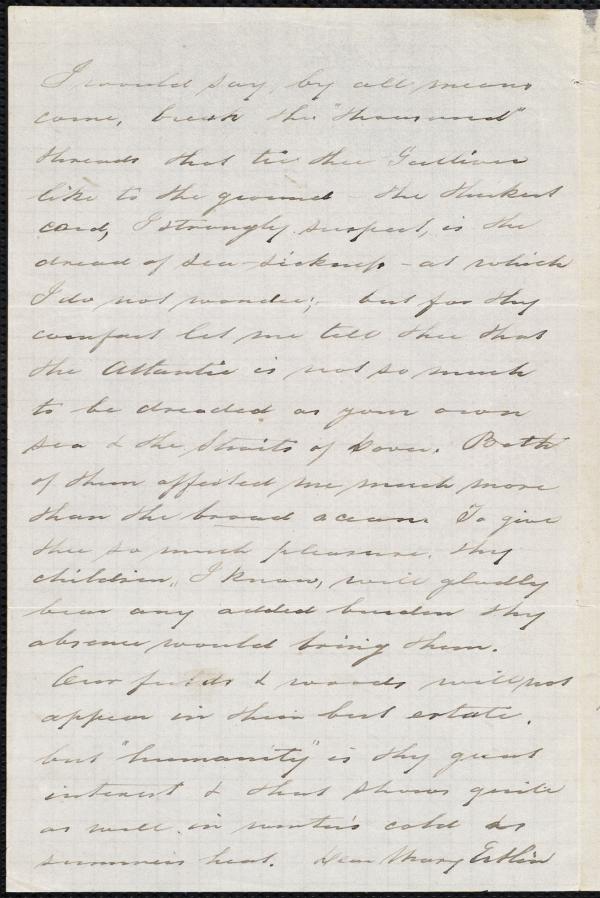 I would say, by all means
come, break the "thousand"
threads that tie thee Gulliver
like to the ground - the thickest
cord, I strongly suspect, is the
dread of sea-sickness - at which
I do not wonder; - but for thy
comfort let me tell thee that
the Atlantic is not so much
to be dreaded as your own
sea & the Straits of Dover. Both
of them affected me much more
than the broad ocean. To give
thee so much pleasure, thy
children, I know, will gladly
bear any added burden thy
absence would bring them.
Our fields & woods will not
appear in their best estate,
but "humanity" is thy great
interest & that shows quite
as well in winter's cold as
summers heat. Dear Mary Estlin